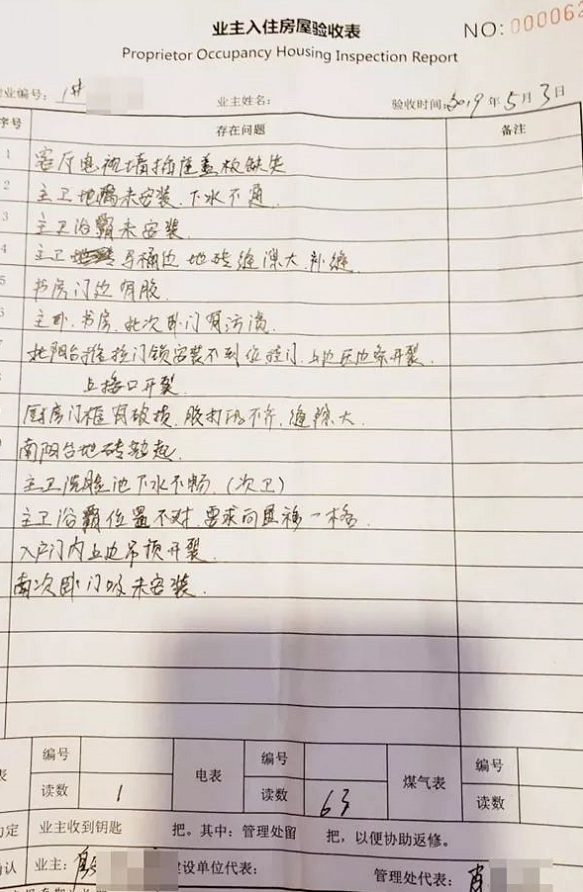 业主入住房屋验收表
NO:000062
Proprietor Occupancy Housing Inspection Report
业编号: 1#
业主姓名:
验收时间:2019年5月3日
序号 存在问题 备注
1 客厅电视墙插座盖板缺失
2 主卫地漏未安装、下水不通
3 主卫浴霸未安装
4 主卫马桶边地砖缝隙大、补缝
5 书房门边有胶
6 主卧、书房、北次卧门有污渍
7 北阳台推拉门锁安装不到位拉门、上边压边条开裂
上接口开裂
厨房门框有破损、胶打的不齐、缝隙大
南阳台地砖翘起
主卫洗脸池下水不畅(次卫)
主卫浴霸位置不对、要求向里移一格
入户门内上边吊顶开裂
南次卧门吸未安装
表 编号 电表 编号 煤气表 编号
读数 1 读数 63 读数
约定 业主收到钥匙 把。其中:管理处留 把,以便协助返修。
确认 业主: 建设单位代表: 管理处代表: